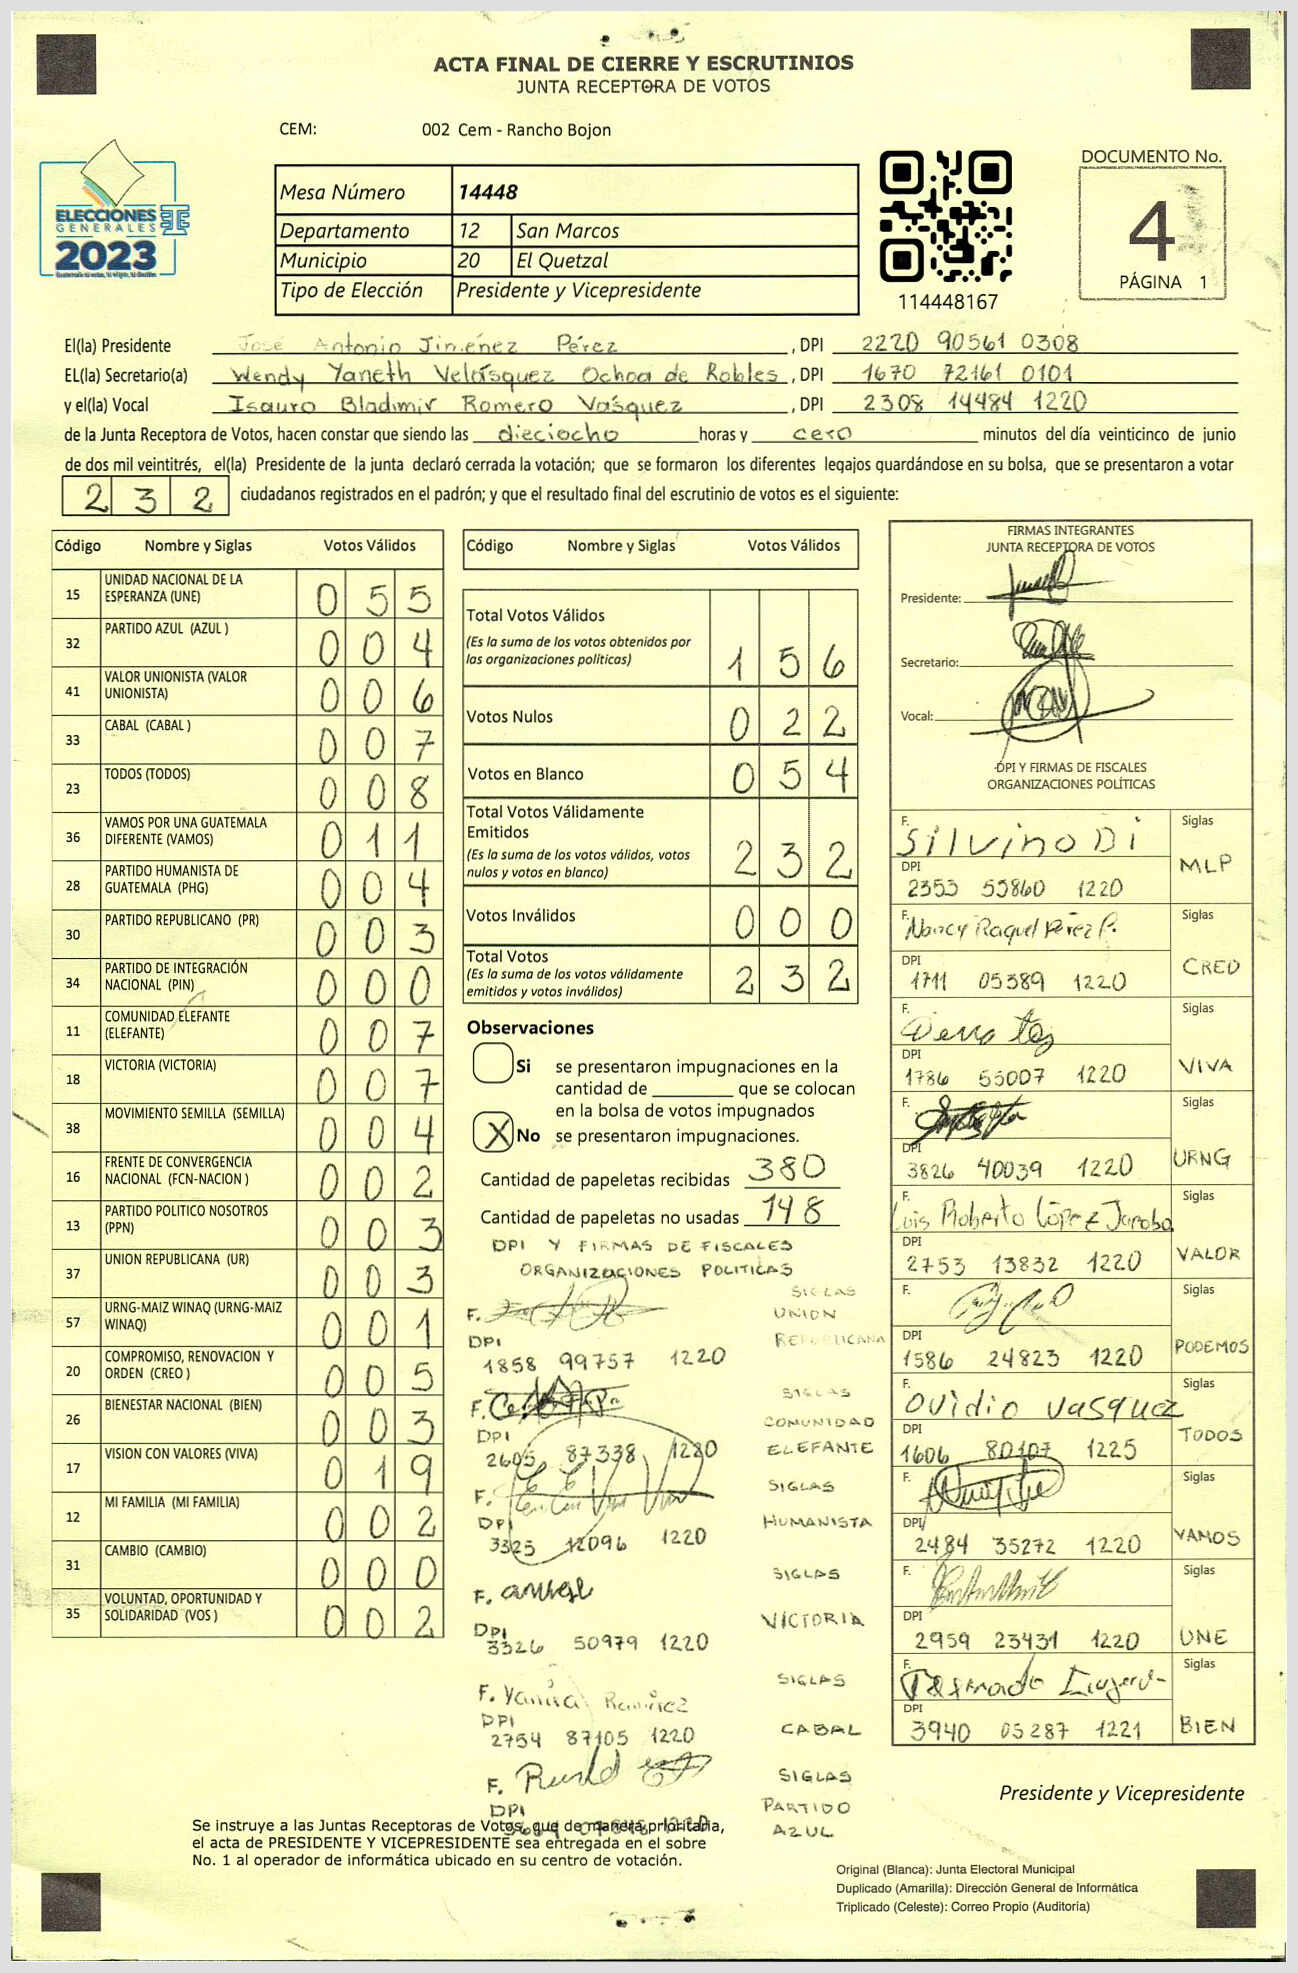 ACTA FINAL DE CIERRE Y ESCRUTINIOS
JUNTA RECEPTORA DE VOTOS
CEM: 002 Cem - Rancho Bojon
ELECCIONES
GENERALES
2023
Mesa Número 14448
Departamento 12 San Marcos
Municipio 20 El Quetzal
Tipo de Elección Presidente y Vicepresidente
114448167
DOCUMENTO No.
4
PÁGINA 1
El(la) Presidente José Antonio Jiménez Pérez , DPI 2220 90561 0308
EL(la) Secretario(a) Wendy Yaneth Velásquez Ochoa de Robles , DPI 1670 72161 0101
y el(la) Vocal Isauro Bladimir Romero Vásquez , DPI 2308 14484 1220
de la Junta Receptora de Votos, hacen constar que siendo las dieciocho horas y cero minutos del día veinticinco de junio
de dos mil veintitrés, el(la) Presidente de la junta declaró cerrada la votación; que se formaron los diferentes legajos guardándose en su bolsa, que se presentaron a votar
232 ciudadanos registrados en el padrón; y que el resultado final del escrutinio de votos es el siguiente:
Código Nombre y Siglas Votos Válidos
15 UNIDAD NACIONAL DE LA
ESPERANZA (UNE) 055
32 PARTIDO AZUL (AZUL ) 004
41 VALOR UNIONISTA (VALOR
UNIONISTA) 006
33 CABAL (CABAL ) 007
23 TODOS (TODOS) 008
36 VAMOS POR UNA GUATEMALA
DIFERENTE (VAMOS) 011
28 PARTIDO HUMANISTA DE
GUATEMALA (PHG) 004
30 PARTIDO REPUBLICANO (PR) 003
34 PARTIDO DE INTEGRACIÓN
NACIONAL (PIN) 000
11 COMUNIDAD ELEFANTE
(ELEFANTE) 007
18 VICTORIA (VICTORIA) 007
38 MOVIMIENTO SEMILLA (SEMILLA) 004
16 FRENTE DE CONVERGENCIA
NACIONAL (FCN-NACION ) 002
13 PARTIDO POLITICO NOSOTROS
(PPN) 003
37 UNION REPUBLICANA (UR) 003
57 URNG-MAIZ WINAQ (URNG-MAIZ
WINAQ) 001
20 COMPROMISO, RENOVACION Y
ORDEN (CREO ) 005
26 BIENESTAR NACIONAL (BIEN) 003
17 VISION CON VALORES (VIVA) 019
12 MI FAMILIA (MI FAMILIA) 002
31 CAMBIO (CAMBIO) 000
35 VOLUNTAD, OPORTUNIDAD Y
SOLIDARIDAD (VOS ) 002
Código Nombre y Siglas Votos Válidos
Total Votos Válidos
(Es la suma de los votos obtenidos por
las organizaciones políticas) 156
Votos Nulos 022
Votos en Blanco 054
Total Votos Válidamente
Emitidos
(Es la suma de los votos válidos, votos
nulos y votos en blanco) 232
Votos Inválidos 000
Total Votos
(Es la suma de los votos válidamente
emitidos y votos inválidos) 232
Observaciones
Si se presentaron impugnaciones en la
cantidad de que se colocan
en la bolsa de votos impugnados
X No se presentaron impugnaciones.
Cantidad de papeletas recibidas 380
Cantidad de papeletas no usadas 148
DPI Y FIRMAS DE FISCALES
ORGANIZACIONES POLITICAS
SIGLAS
F. UNION
DPI REPUBLICANA
1858 99757 1220
SIGLAS
F. COMUNIDAD
DPI ELEFANTE
2605 87338 1220
SIGLAS
F. HUMANISTA
DPI
3325 12096 1220
SIGLAS
F.
VICTORIA
DPI
3326 50979 1220
SIGLAS
F. Yanira Ramírez
DPI
2754 87105 1220 CABAL
SIGLAS
F.
DPI PARTIDO
AZUL
FIRMAS INTEGRANTES
JUNTA RECEPTORA DE VOTOS
Presidente:
Secretario:
Vocal:
DPI Y FIRMAS DE FISCALES
ORGANIZACIONES POLÍTICAS
F. Silvino Di Siglas
DPI MLP
2353 53860 1220
F. Nancy Raquel Pérez P. Siglas
DPI CREO
1711 05389 1220
F. Siglas
DPI VIVA
1786 55007 1220
F. Siglas
DPI URNG
3826 40039 1220
F. Luis Roberto López Jacobo Siglas
DPI VALOR
2753 13832 1220
F. Siglas
DPI PODEMOS
1586 24823 1220
F. Ovidio Vasquez Siglas
DPI TODOS
1606 80107 1225
F. Siglas
DPI VAMOS
2484 35272 1220
F. Siglas
DPI UNE
2959 23431 1220
F. Siglas
DPI BIEN
3940 05287 1221
Presidente y Vicepresidente
Se instruye a las Juntas Receptoras de Votos, que de manera prioritaria,
el acta de PRESIDENTE Y VICEPRESIDENTE sea entregada en el sobre
No. 1 al operador de informática ubicado en su centro de votación.
Original (Blanca): Junta Electoral Municipal
Duplicado (Amarilla): Dirección General de Informática
Triplicado (Celeste): Correo Propio (Auditoría)